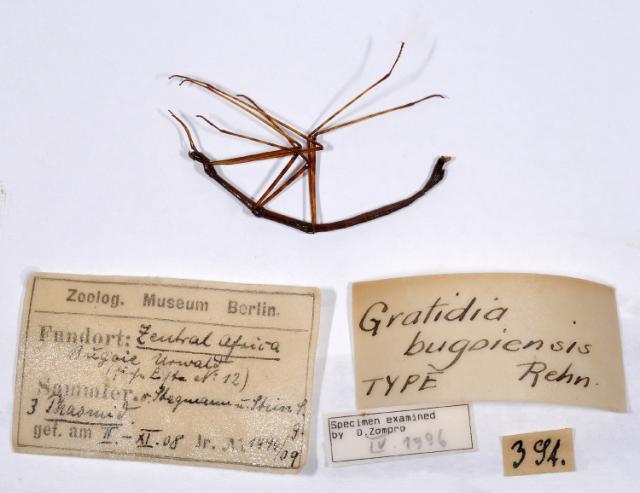 Zoolog. Museum Berlin.
Fundort: Zentral Afrika
Bugoie Urwald
N° 12)
Sammler. v. Stegmann u. Stein S.
3 Phasmid.
gef. am II - XI. 08 Nr.
09
Gratidia
bugoiensis
TYPE Rehn.
Specimen examined
by O.Zompro
IV. 1996
3 St.